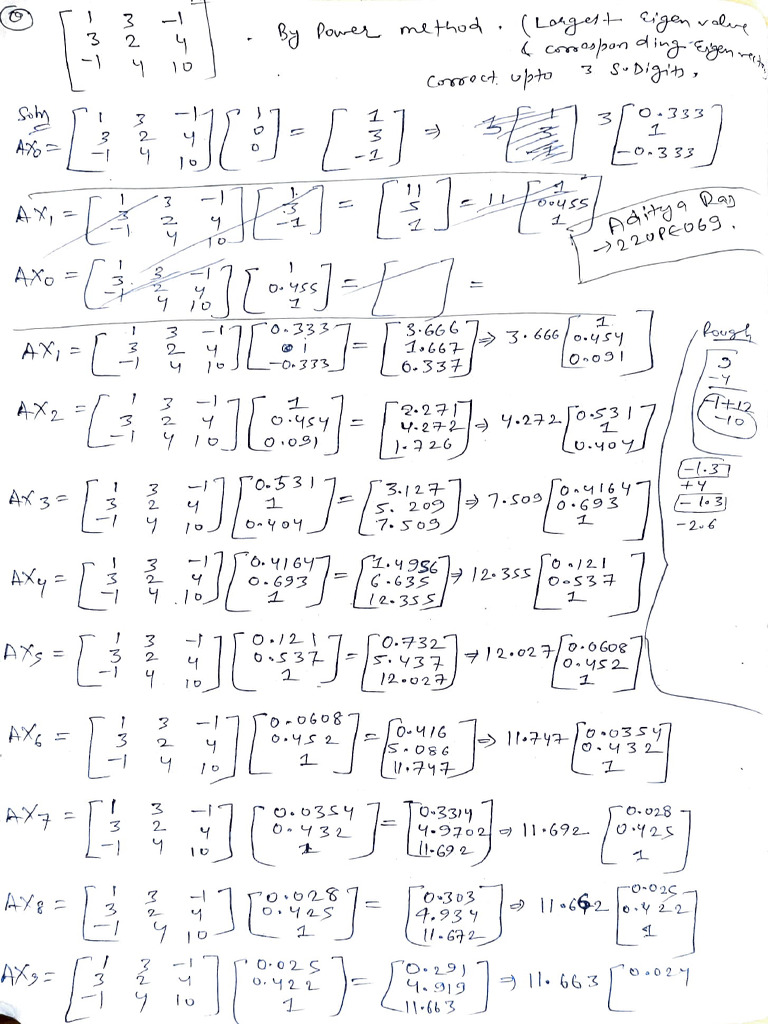 Q [1 3 -1; 3 2 4; -1 4 10] . By Power method . (Largest Eigen value
& corresponding Eigen
correct upto 3 S.Digits,
Soln
AX0 = [1 3 -1; 3 2 4; -1 4 10] [1; 0; 0] = [1; 3; -1] ⇒ 3 [0.333; 1; -0.333]
AX1 = [1 3 -1; 3 2 4; -1 4 10] [1; 3; -1] = [11; 5; 1] = 11 [1; 0.455; 1]
Aditya Raj
→ 22UPE069.
AX0 = [1 3 -1; 3 2 4; -1 4 10] [1; 0.455; 1] = [ ] =
AX1 = [1 3 -1; 3 2 4; -1 4 10] [0.333; 1; -0.333] = [3.666; 1.667; 0.337] ⇒ 3.666 [1; 0.454; 0.091]
Rough
9
-4
-1+12
-10
AX2 = [1 3 -1; 3 2 4; -1 4 10] [1; 0.454; 0.091] = [2.271; 4.272; 1.726] ⇒ 4.272 [0.531; 1; 0.404]
-1.3
+4
-1.3
-2.6
AX3 = [1 3 -1; 3 2 4; -1 4 10] [0.531; 1; 0.404] = [3.127; 5.209; 7.509] ⇒ 7.509 [0.4164; 0.693; 1]
AX4 = [1 3 -1; 3 2 4; -1 4 10] [0.4164; 0.693; 1] = [1.4956; 6.635; 12.355] ⇒ 12.355 [0.121; 0.537; 1]
AX5 = [1 3 -1; 3 2 4; -1 4 10] [0.121; 0.537; 1] = [0.732; 5.437; 12.027] ⇒ 12.027 [0.0608; 0.452; 1]
AX6 = [1 3 -1; 3 2 4; -1 4 10] [0.0608; 0.452; 1] = [0.416; 5.086; 11.747] ⇒ 11.747 [0.0354; 0.432; 1]
AX7 = [1 3 -1; 3 2 4; -1 4 10] [0.0354; 0.432; 1] = [0.3314; 4.9702; 11.692] ⇒ 11.692 [0.028; 0.425; 1]
AX8 = [1 3 -1; 3 2 4; -1 4 10] [0.028; 0.425; 1] = [0.303; 4.934; 11.672] ⇒ 11.662 [0.025; 0.422; 1]
AX9 = [1 3 -1; 3 2 4; -1 4 10] [0.025; 0.422; 1] = [0.291; 4.919; 11.663] ⇒ 11.663 [0.024